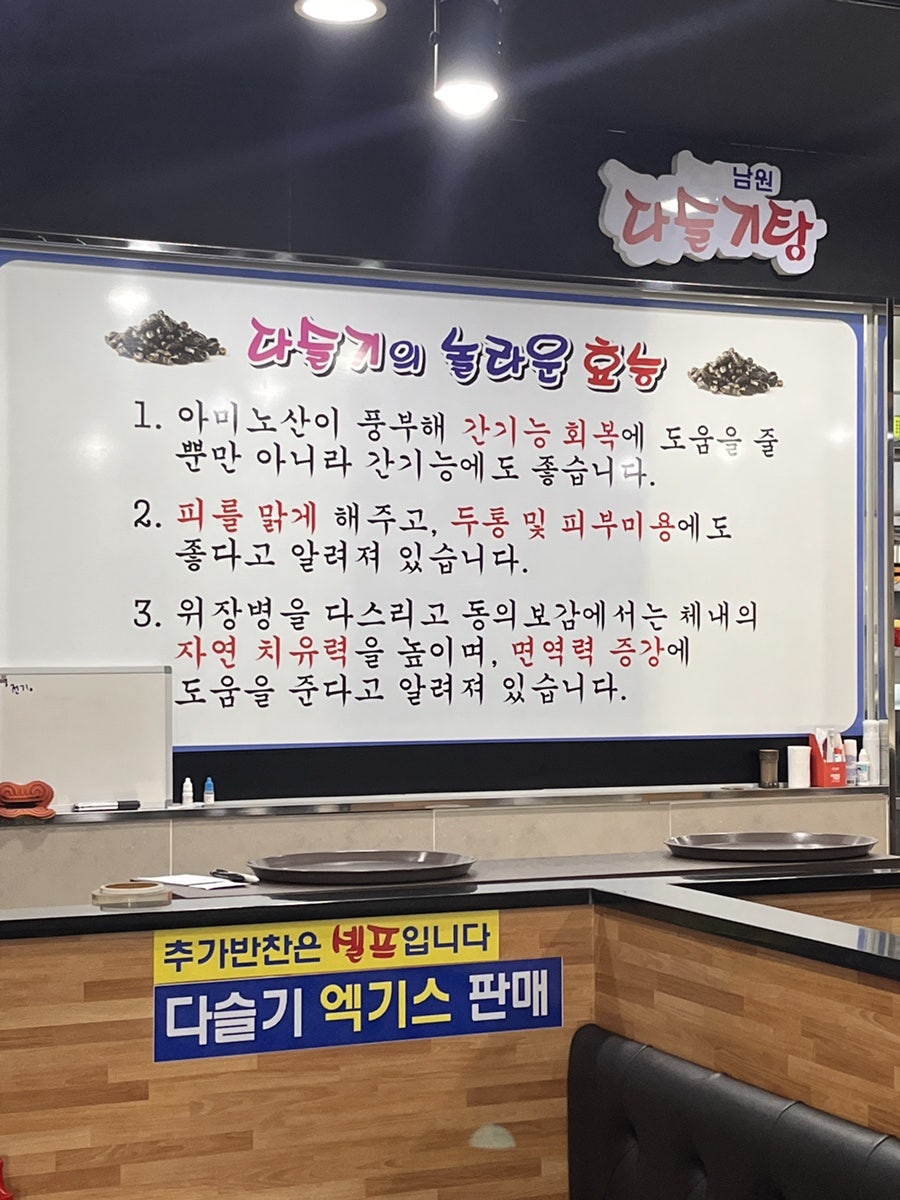 남원
다슬기탕
다슬기의 놀라운 효능
1. 아미노산이 풍부해 간기능 회복에 도움을 줄
뿐만 아니라 간기능에도 좋습니다.
2. 피를 맑게 해주고, 두통 및 피부미용에도
좋다고 알려져 있습니다.
3. 위장병을 다스리고 동의보감에서는 체내의
자연 치유력을 높이며, 면역력 증강에
도움을 준다고 알려져 있습니다.
추가반찬은 셀프입니다
다슬기 엑기스 판매